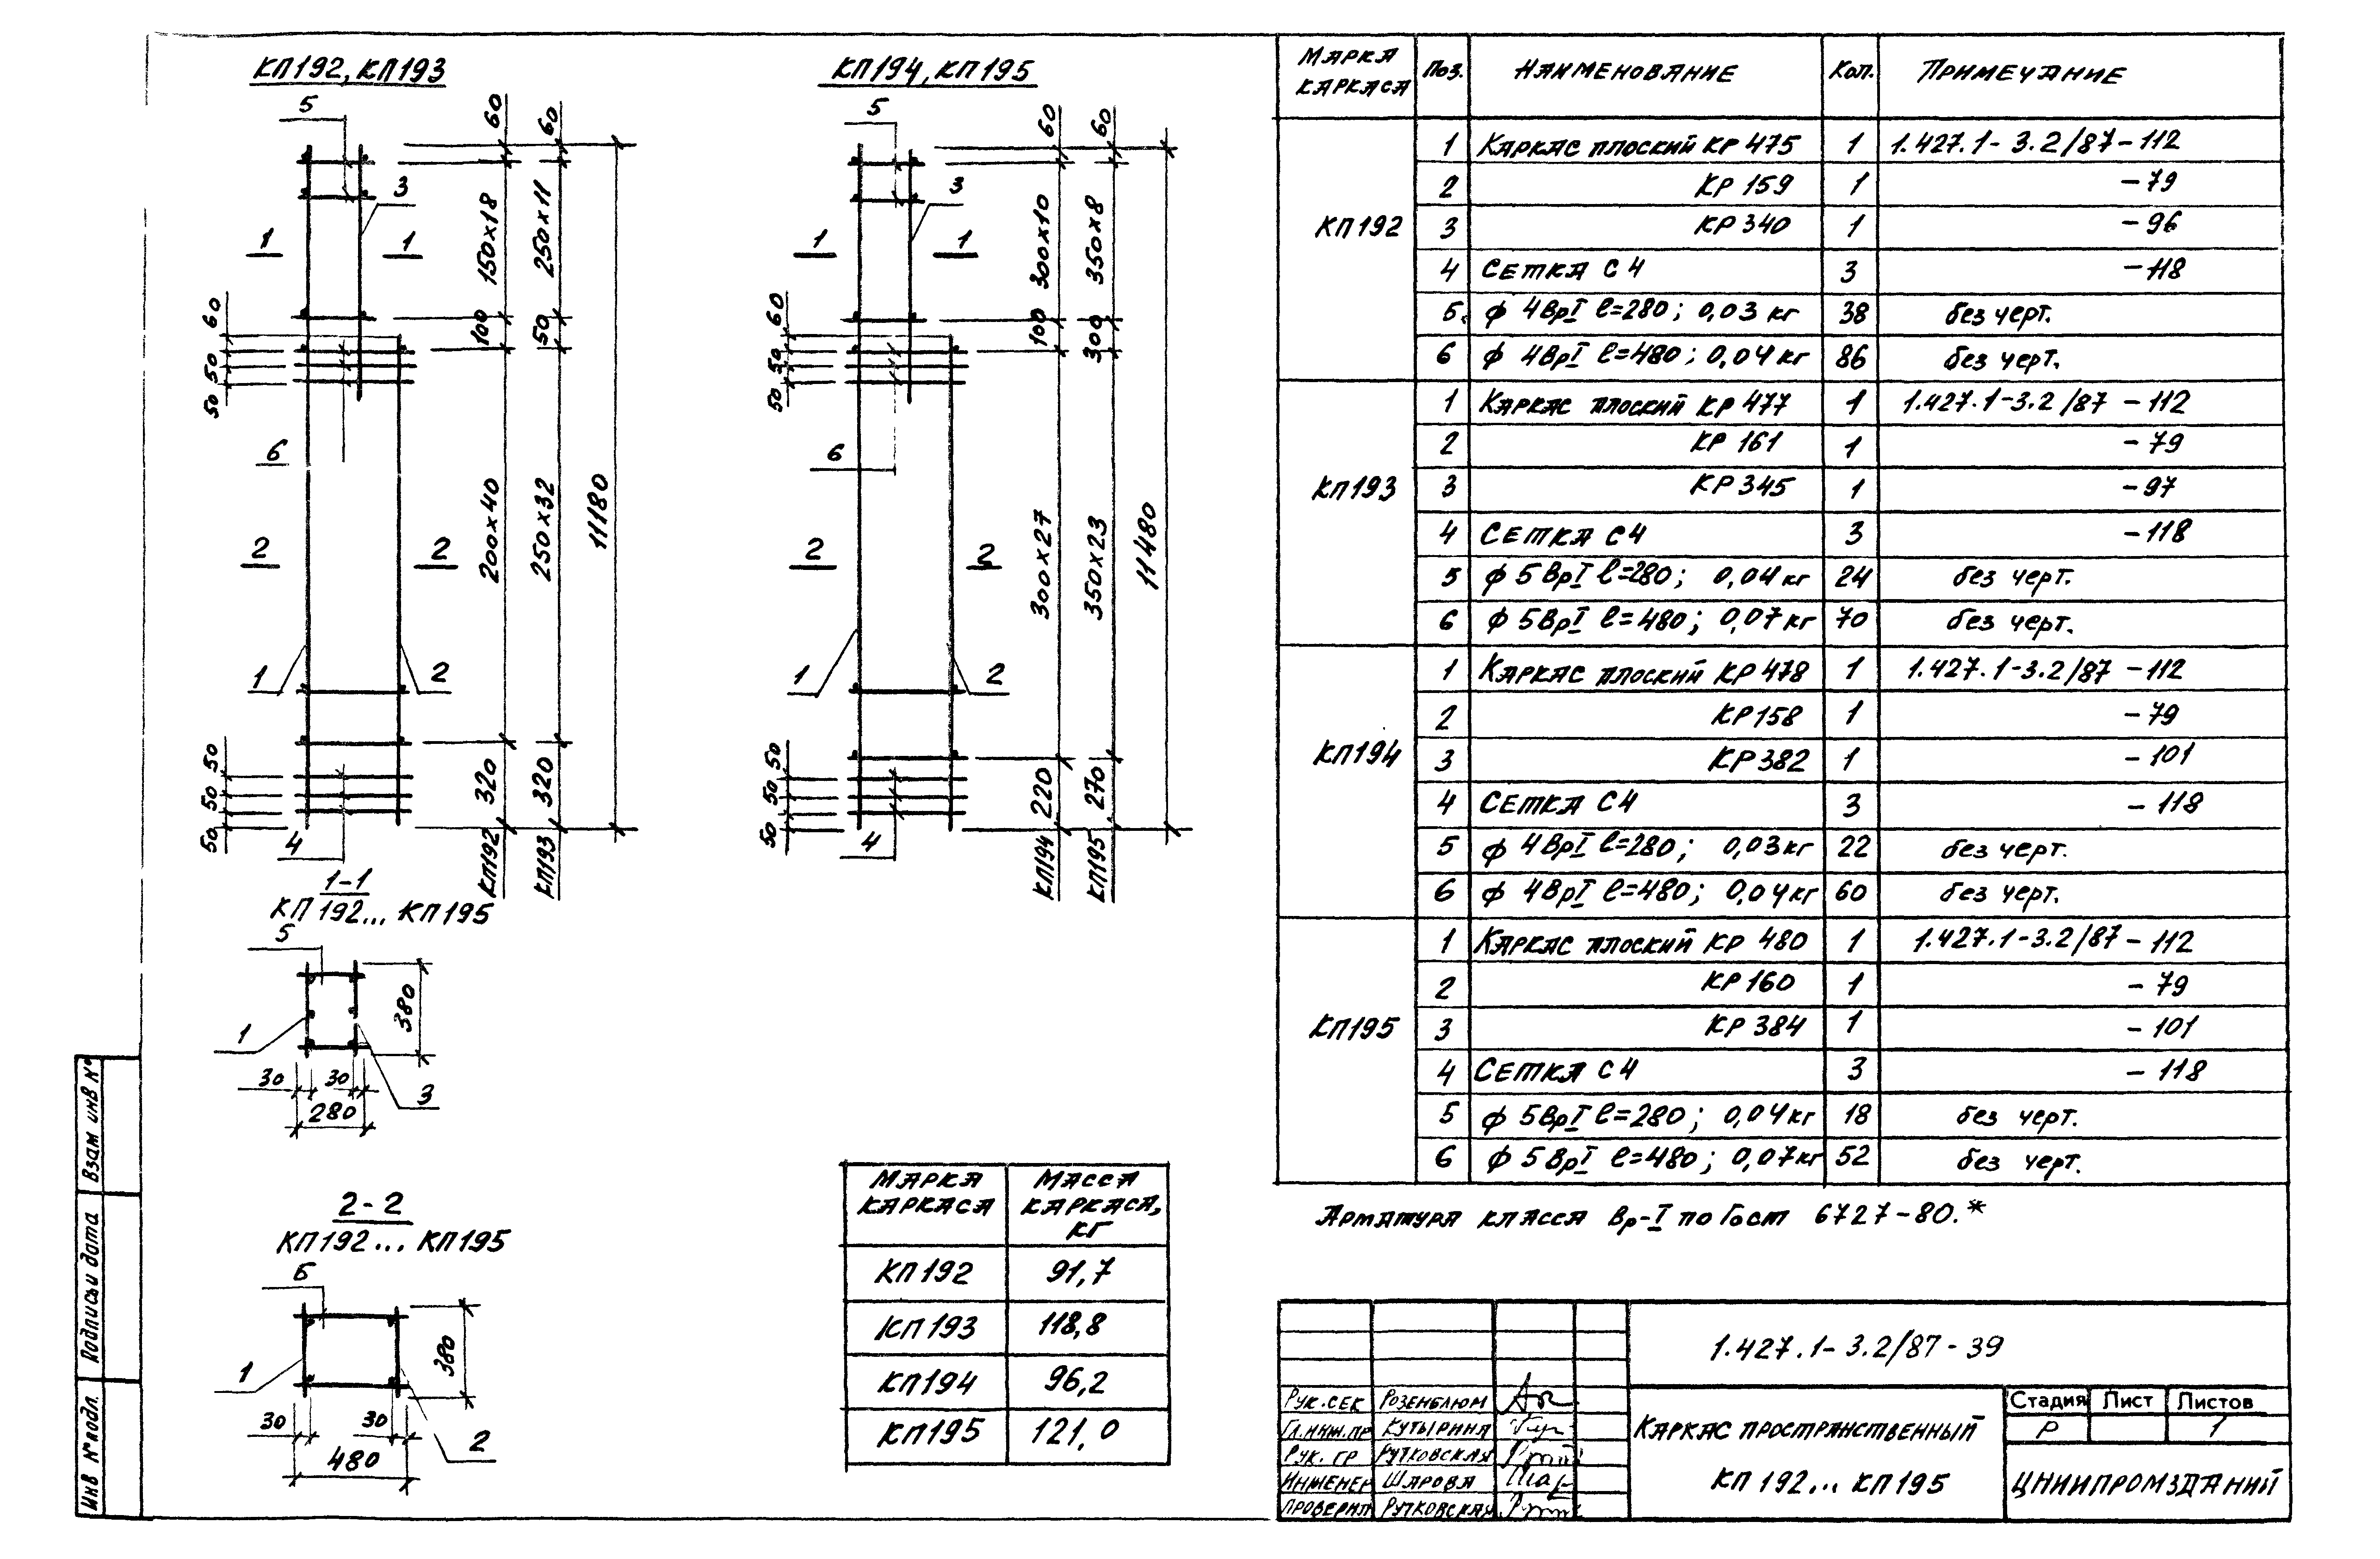 КП192, КП193
5
3
1 1
60
50
50
6
2 2
1 2
50
50
50
4
60 60
150х18 250х11
100 50
200х40 250х32
320 320
КП192 КП193
11180
КП194, КП195
5
3
1 1
60
50
50
6
2 2
1 2
50
50
50
4
60 60
300х10 350х8
100 300
300х27 350х23
220 270
КП194 КП195
11480
1-1
КП192... КП195
5
1
380
30 30
3
280
2-2
КП192... КП195
6
1
380
30 30
2
480
Марка каркаса Масса каркаса, кг
КП192 91,7
КП193 118,8
КП194 96,2
КП195 121,0
Марка каркаса Поз. Наименование Кол. Примечание
КП192
1 Каркас плоский КР 475 1 1.427.1-3.2/87-112
2 КР 159 1 -79
3 КР 340 1 -96
4 Сетка С4 3 -118
5 ф 4ВрI l=280; 0,03 кг 38 без черт.
6 ф 4ВрI l=480; 0,04 кг 86 без черт.
КП193
1 Каркас плоский КР 477 1 1.427.1-3.2/87-112
2 КР 161 1 -79
3 КР 345 1 -97
4 Сетка С4 3 -118
5 ф 5ВрI l=280; 0,04 кг 24 без черт.
6 ф 5ВрI l=480; 0,07 кг 70 без черт.
КП194
1 Каркас плоский КР 478 1 1.427.1-3.2/87-112
2 КР158 1 -79
3 КР 382 1 -101
4 Сетка С4 3 -118
5 ф 4ВрI l=280; 0,03 кг 22 без черт.
6 ф 4ВрI l=480; 0,04 кг 60 без черт.
КП195
1 Каркас плоский КР 480 1 1.427.1-3.2/87-112
2 КР 160 1 -79
3 КР 384 1 -101
4 Сетка С4 3 -118
5 ф 5ВрI l=280; 0,04 кг 18 без черт.
6 ф 5ВрI l=480; 0,07 кг 52 без черт.
Арматура класса Вр-I по Гост 6727-80.*
1.427.1-3.2/87-39
Рук. сек Розенблюм
Гл.инж.пр Кутырина
Рук. гр Рутковская
Инженер Шарова
Проверил Рутковская
Каркас пространственный
КП 192... КП195
Стадия Лист Листов
Р 1
ЦНИИПРОМЗДАНИЙ
Взам инв №
Подпись и дата
Инв № подл.